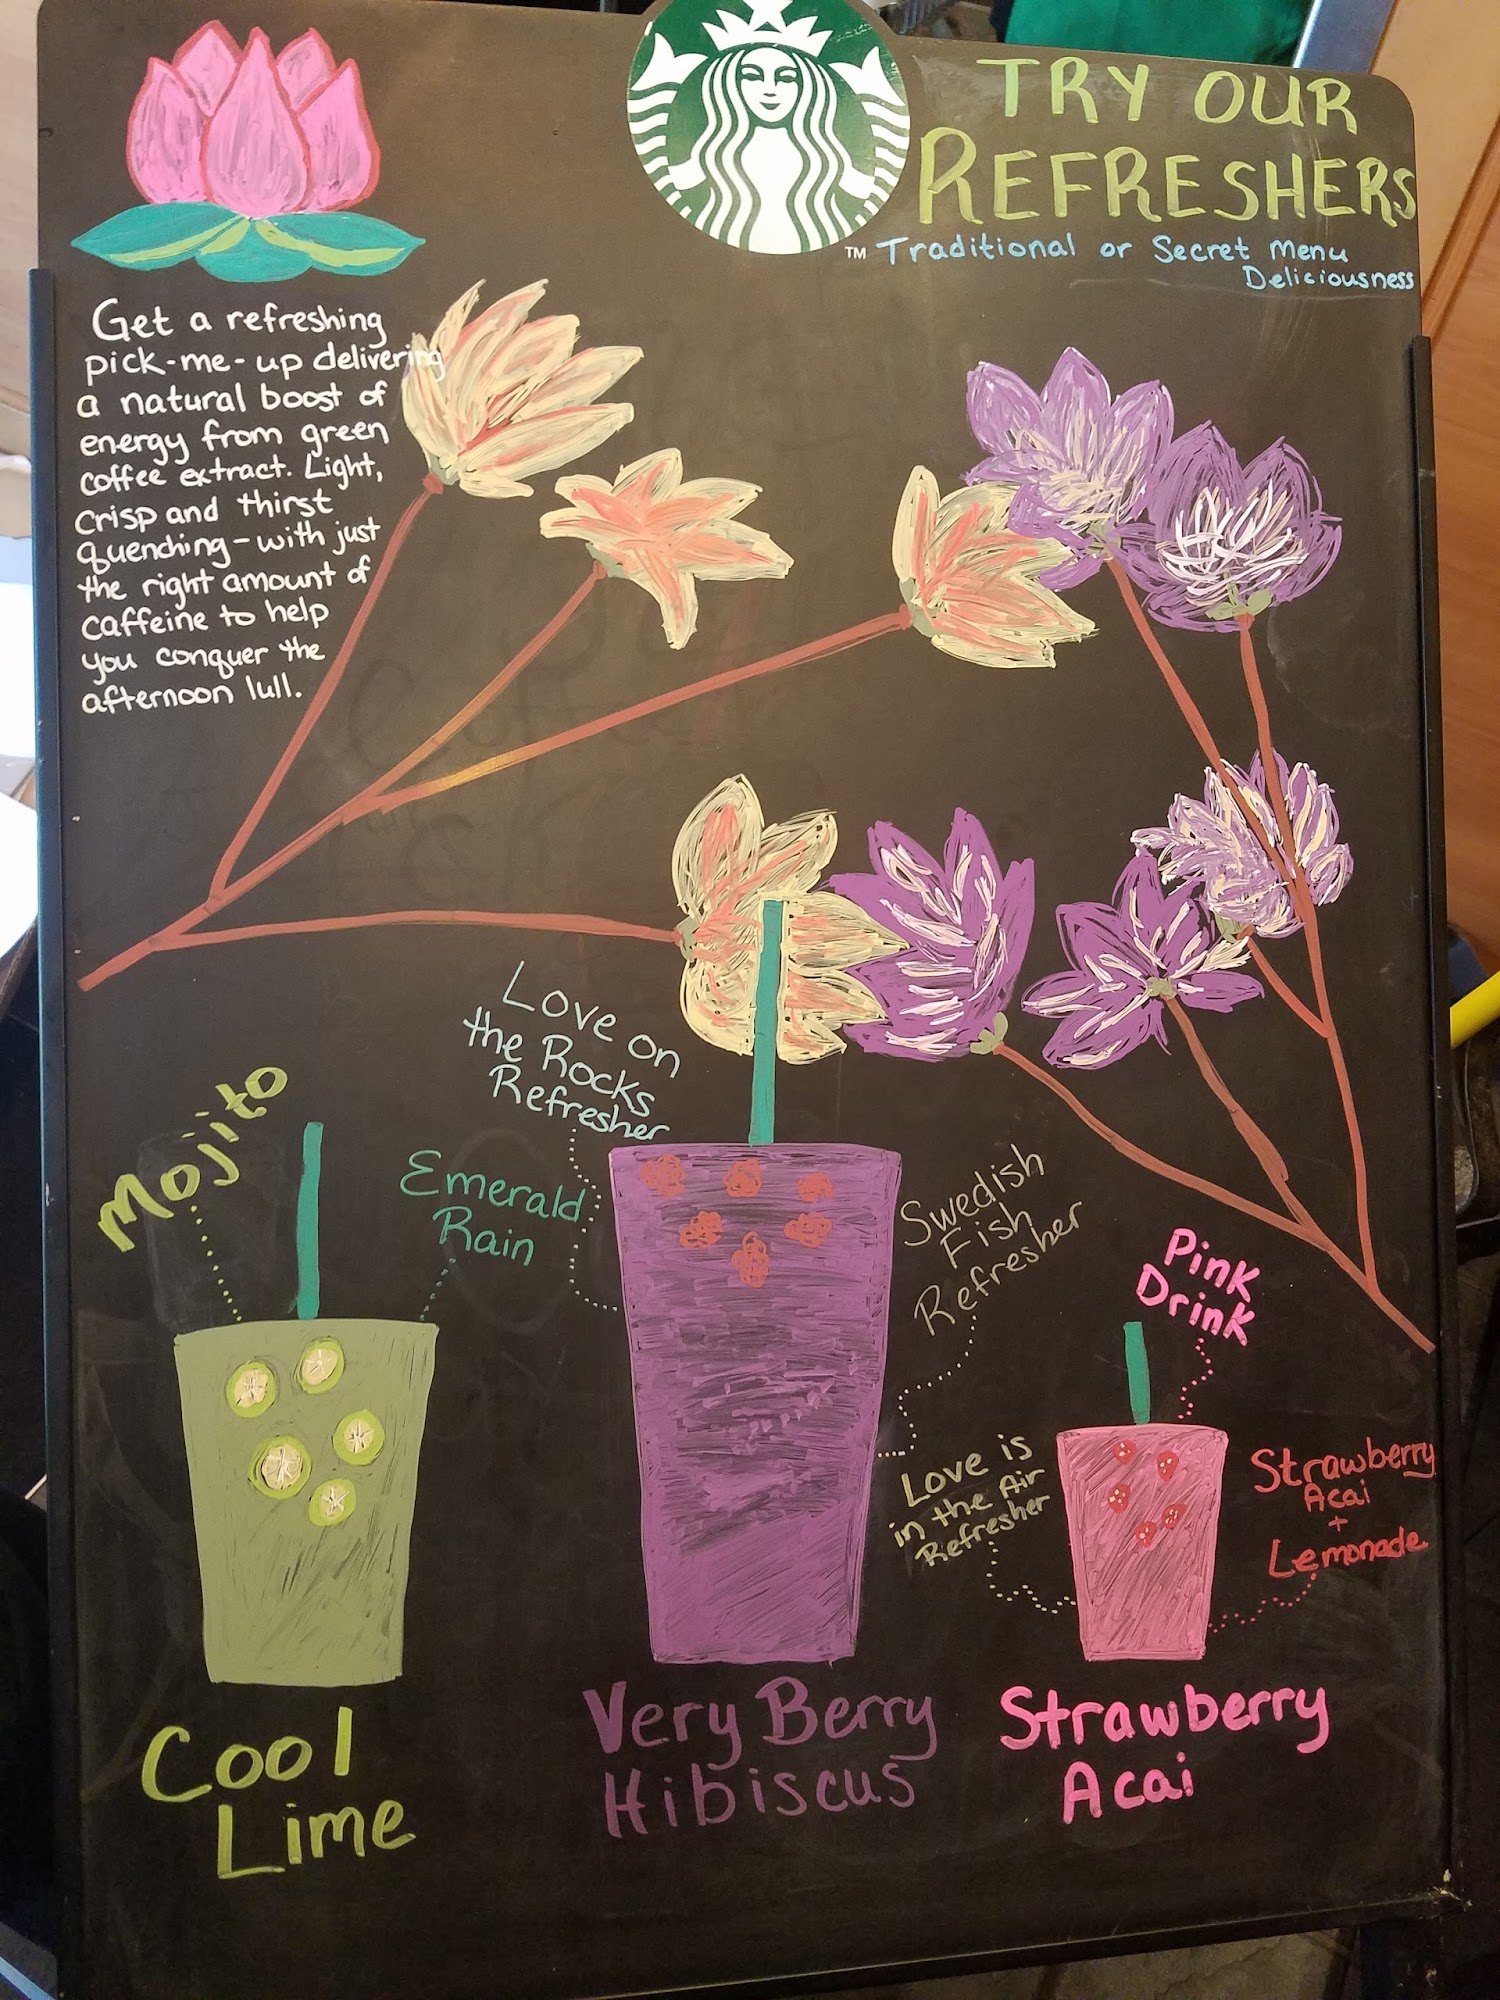 TRY OUR
REFRESHERS
™ Traditional or Secret Menu
Deliciousness
Get a refreshing
pick-me-up delivering
a natural boost of
energy from green
coffee extract. Light,
crisp and thirst
quenching - with just
the right amount of
caffeine to help
you conquer the
afternoon lull.
Mojito
Emerald
Rain
Love on
the Rocks
Refresher
Swedish
Fish
Refresher
Pink
Drink
Love is
in the Air
Refresher
Strawberry
Acai
+
Lemonade
Cool
Lime
Very Berry
Hibiscus
Strawberry
Acai